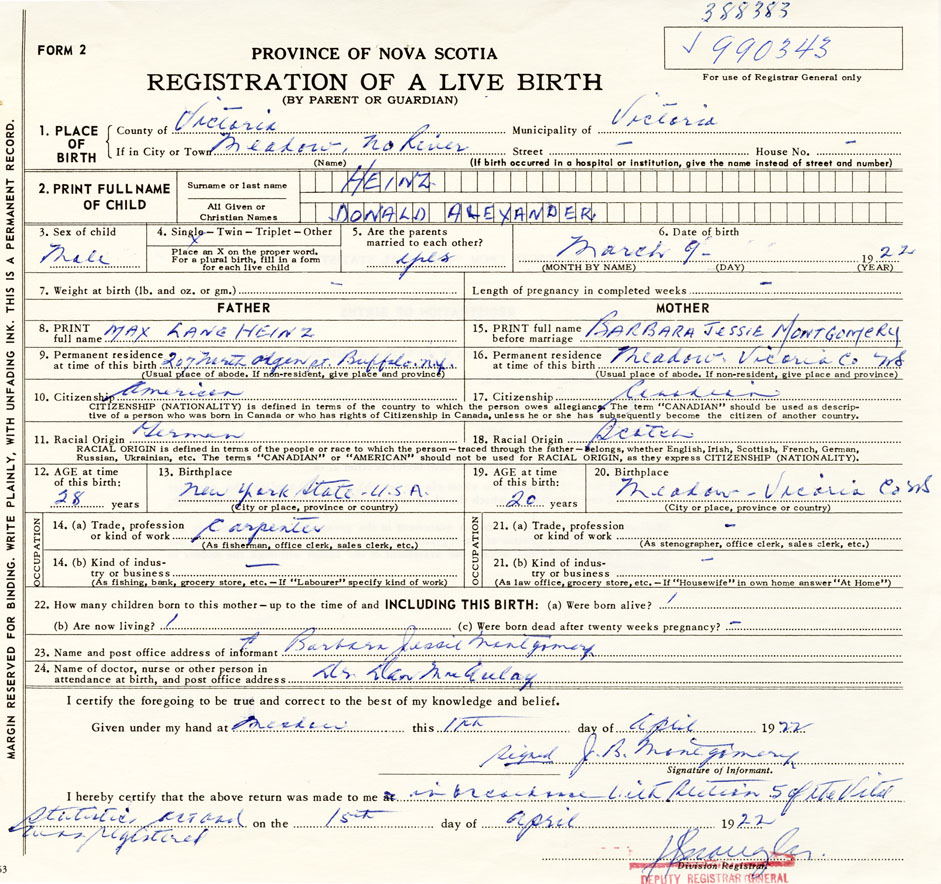 388383
FORM 2
√ 990343
For use of Registrar General only
PROVINCE OF NOVA SCOTIA
REGISTRATION OF A LIVE BIRTH
(BY PARENT OR GUARDIAN)
1. PLACE OF BIRTH
County of Victoria Municipality of Victoria
If in City or Town Meadow, No River Street – House No. –
(Name) (If birth occurred in a hospital or institution, give the name instead of street and number)
2. PRINT FULL NAME OF CHILD
Surname or last name HEINZ
All Given or Christian Names DONALD ALEXANDER
3. Sex of child Male
4. Single – Twin – Triplet – Other
X
Place an X on the proper word.
For a plural birth, fill in a form
for each live child
5. Are the parents married to each other?
6. Date of birth
March 9 – 1922
(MONTH BY NAME) (DAY) (YEAR)
7. Weight at birth (lb. and oz. or gm.) – Length of pregnancy in completed weeks –
FATHER
MOTHER
8. PRINT full name MAX LANE HEINZ
15. PRINT full name before marriage BARBARA JESSIE MONTGOMERY
9. Permanent residence at time of this birth 207 North Buffalo, N.Y.
(Usual place of abode. If non-resident, give place and province)
16. Permanent residence at time of this birth Meadow, Victoria Co NS
(Usual place of abode. If non-resident, give place and province)
10. Citizenship American
17. Citizenship Canadian
CITIZENSHIP (NATIONALITY) is defined in terms of the country to which the person owes allegiance. The term "CANADIAN" should be used as descrip-
tive of a person who was born in Canada or who has rights of Citizenship in Canada, unless he or she has subsequently become the citizen of another country.
11. Racial Origin German
18. Racial Origin Scotch
RACIAL ORIGIN is defined in terms of the people or race to which the person – traced through the father – belongs, whether English, Irish, Scottish, French, German,
Russian, Ukrainian, etc. The terms "CANADIAN" or "AMERICAN" should not be used for RACIAL ORIGIN, as they express CITIZENSHIP (NATIONALITY).
12. AGE at time of this birth: 28 years
13. Birthplace
New York State – U.S.A.
(City or place, province or country)
19. AGE at time of this birth: 20 years
20. Birthplace
Meadow – Victoria Co NS
(City or place, province or country)
OCCUPATION
14. (a) Trade, profession or kind of work Carpenter
(As fisherman, office clerk, sales clerk, etc.)
14. (b) Kind of indus-
try or business –
(As fishing, bank, grocery store, etc. – If "Labourer" specify kind of work)
OCCUPATION
21. (a) Trade, profession or kind of work –
(As stenographer, office clerk, sales clerk, etc.)
21. (b) Kind of indus-
try or business –
(As law office, grocery store, etc. – If "Housewife" in own home answer "At Home")
22. How many children born to this mother – up to the time of and INCLUDING THIS BIRTH: (a) Were born alive? 1
(b) Are now living? 1 (c) Were born dead after twenty weeks pregnancy? –
23. Name and post office address of informant Barbara Jessie Montgomery
24. Name of doctor, nurse or other person in
attendance at birth, and post office address Dr. Dan MacAulay
I certify the foregoing to be true and correct to the best of my knowledge and belief.
Given under my hand at Meadow this 11th day of April 1922
signed J. B. Montgomery
Signature of Informant.
I hereby certify that the above return was made to me in with Section 5 of the Vital
Statistics
was registered on the 15th day of April 1922
Division Registrar
DEPUTY REGISTRAR GENERAL
MARGIN RESERVED FOR BINDING. WRITE PLAINLY, WITH UNFADING INK. THIS IS A PERMANENT RECORD.
63